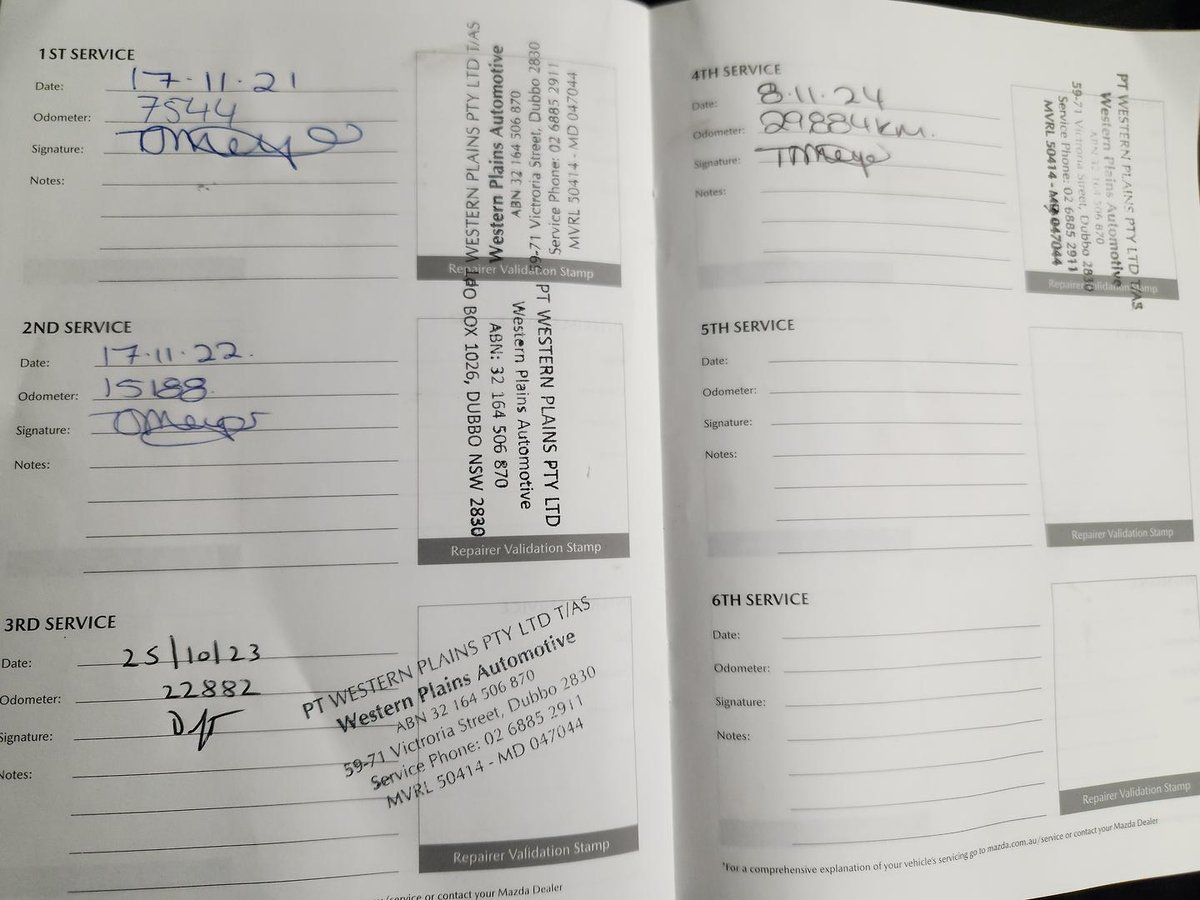 1ST SERVICE
Date: 17-11-21
Odometer: 7544
Signature:
Notes:
PT WESTERN PLAINS PTY LTD T/AS
Western Plains Automotive
ABN 32 164 506 870
59-71 Victroria Street, Dubbo 2830
Service Phone: 02 6885 2911
MVRL 50414 - MD 047044
Repairer Validation Stamp
2ND SERVICE
Date: 17.11.22.
Odometer: 15188.
Signature:
Notes:
PT WESTERN PLAINS PTY LTD
Western Plains Automotive
ABN: 32 164 506 870
PO BOX 1026, DUBBO NSW 2830
Repairer Validation Stamp
3RD SERVICE
Date: 25/10/23
Odometer: 22882
Signature:
Notes:
PT WESTERN PLAINS PTY LTD T/AS
Western Plains Automotive
ABN 32 164 506 870
59-71 Victroria Street, Dubbo 2830
Service Phone: 02 6885 2911
MVRL 50414 - MD 047044
Repairer Validation Stamp
/service or contact your Mazda Dealer
4TH SERVICE
Date: 8.11.24
Odometer: 29884KM.
Signature:
Notes:
PT WESTERN PLAINS PTY LTD T/AS
Western Plains Automotive
ABN 32 164 506 870
59-71 Victroria Street, Dubbo 2830
Service Phone: 02 6885 2911
MVRL 50414 - MD 047044
Repairer Validation Stamp
5TH SERVICE
Date:
Odometer:
Signature:
Notes:
Repairer Validation Stamp
6TH SERVICE
Date:
Odometer:
Signature:
Notes:
Repairer Validation Stamp
*For a comprehensive explanation of your vehicle's servicing go to mazda.com.au/service or contact your Mazda Dealer